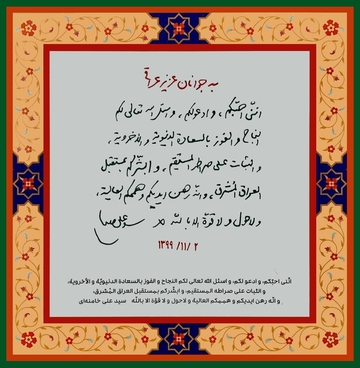 به جوانان عزیز عراق
انّنی احبّکم، و ادعو لکم، و اسئل الله تعالی لکم
النجاح و الفوز بالسعادة الدنیویّة و الأخرویة،
و الثبات علی صراطه المستقیم، و ابشّرکم بمستقبل
العراق المشرق، و انّه رهن ایدیکم و هممکم العالیة،
و لاحول و لا قوّة الا بالله سیدعلی خامنه‌ای
۱۳۹۹/۱۱/۲
انّنی احبّکم، و ادعو لکم، و اسئل الله تعالی لکم النجاح و الفوز بالسعادة الدنیویّة و الأخرویة،
و الثبات علی صراطه المستقیم، و ابشّرکم بمستقبل العراق المُشرق،
و انّه رهن ایدیکم و هممکم العالیة و لاحول و لا قوّة الا بالله سید علی خامنه‌ای